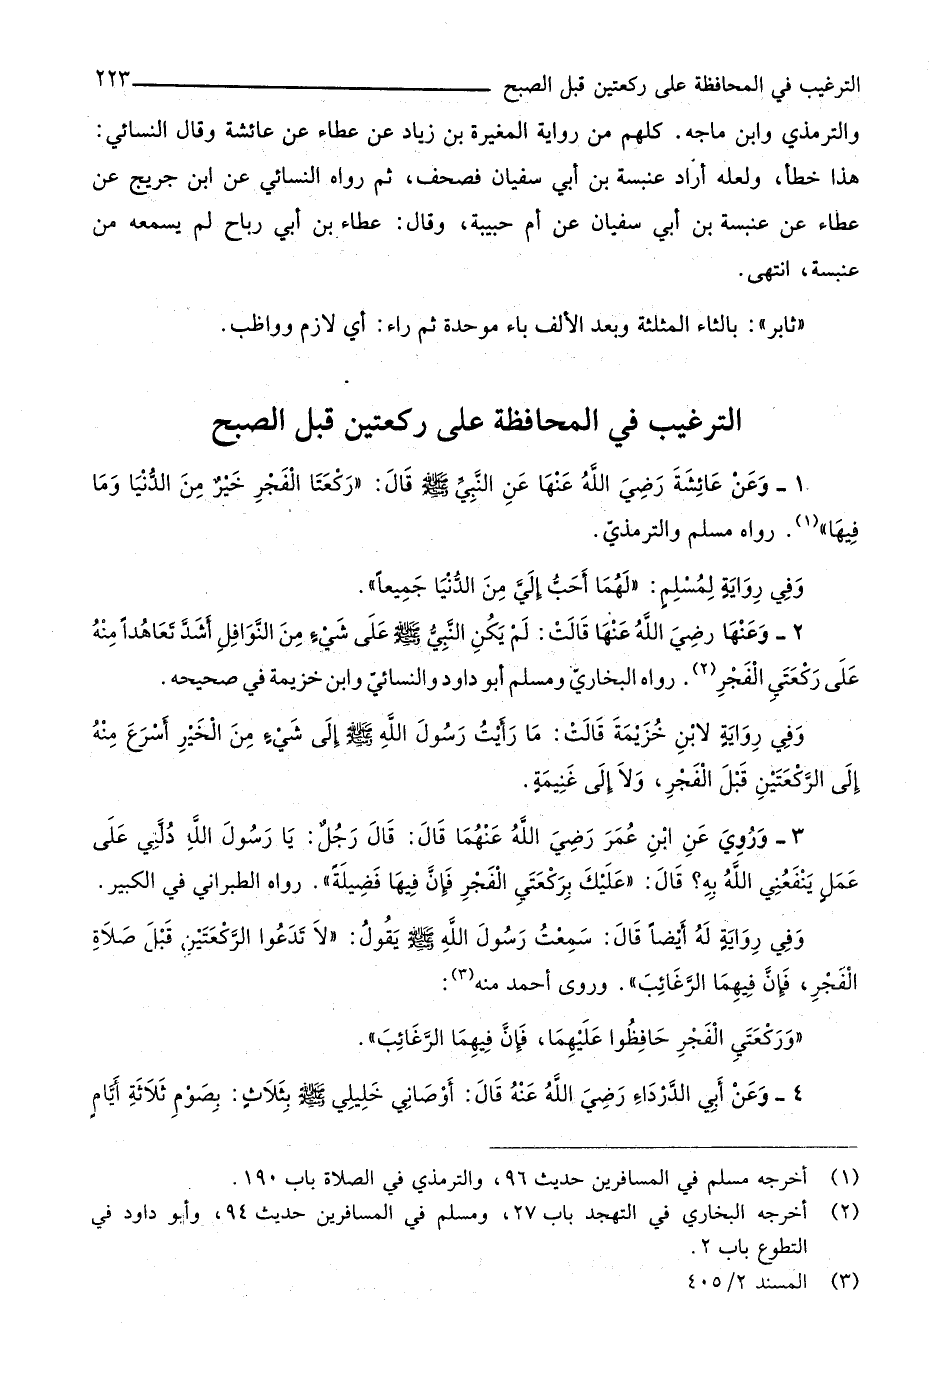 الترغيب في المحافظة على ركعتين قبل الصبح ٢٢٣
والترمذي وابن ماجه. كلهم من رواية المغيرة بن زياد عن عطاء عن عائشة وقال النسائي:
هذا خطأ، ولعله أراد عنبسة بن أبي سفيان فصحف، ثم رواه النسائي عن ابن جريج عن
عطاء عن عنبسة بن أبي سفيان عن أم حبيبة، وقال: عطاء بن أبي رباح لم يسمعه من
عنبسة، انتهى.
«ثابر»: بالثاء المثلثة وبعد الألف باء موحدة ثم راء: أي لازم وواظب.
الترغيب في المحافظة على ركعتين قبل الصبح
١ ـ وَعَنْ عَائِشَةَ رَضِيَ اللَّهُ عَنْهَا عَنِ النَّبِيِّ ﷺ قَالَ: «رَكْعَتَا الْفَجْرِ خَيْرٌ مِنَ الدُّنْيَا وَمَا
فِيهَا»(١). رواه مسلم والترمذيّ.
وَفِي رِوَايَةٍ لِمُسْلِمٍ: «لَهُمَا أَحَبُّ إِلَيَّ مِنَ الدُّنْيَا جَمِيعاً».
٢ ـ وَعَنْهَا رضِيَ اللَّهُ عَنْهَا قَالَتْ: لَمْ يَكُنِ النَّبِيُّ ﷺ عَلَى شَيْءٍ مِنَ النَّوَافِلِ أَشَدَّ تَعَاهُداً مِنْهُ
عَلَى رَكْعَتَيِ الْفَجْرِ(٢). رواه البخاريّ ومسلم أبو داود والنسائيّ وابن خزيمة في صحيحه.
وَفِي رِوَايَةٍ لابْنِ خُزَيْمَةَ قَالَتْ: مَا رَأَيْتُ رَسُولَ اللَّهِ ﷺ إِلَى شَيْءٍ مِنَ الْخَيْرِ أَسْرَعَ مِنْهُ
إِلَى الرَّكْعَتَيْنِ قَبْلَ الْفَجْرِ، وَلاَ إِلَى غَنِيمَةٍ.
٣ ـ وَرُوِيَ عَنِ ابْنِ عُمَرَ رَضِيَ اللَّهُ عَنْهُمَا قَالَ: قَالَ رَجُلٌ: يَا رَسُولَ اللَّهِ دُلَّنِي عَلَى
عَمَلٍ يَنْفَعُنِي اللَّهُ بِهِ؟ قَالَ: «عَلَيْكَ بِرَكْعَتَيِ الْفَجْرِ فَإِنَّ فِيهَا فَضِيلَةً». رواه الطبراني في الكبير.
وَفِي رِوَايَةٍ لَهُ أَيْضاً قَالَ: سَمِعْتُ رَسُولَ اللَّهِ ﷺ يَقُولُ: «لاَ تَدَعُوا الرَّكْعَتَيْنِ قَبْلَ صَلاَةِ
الْفَجْرِ، فَإِنَّ فِيهِمَا الرَّغَائِبَ». وروى أحمد منه(٣):
«وَرَكْعَتَيِ الْفَجْرِ حَافِظُوا عَلَيْهِمَا، فَإِنَّ فِيهِمَا الرَّغَائِبَ».
٤ ـ وَعَنْ أَبِي الدَّرْدَاءِ رَضِيَ اللَّهُ عَنْهُ قَالَ: أَوْصَانِي خَلِيلِي ﷺ بِثَلاَثٍ: بِصَوْمِ ثَلاَثَةِ أَيَّامٍ
(١) أخرجه مسلم في المسافرين حديث ٩٦، والترمذي في الصلاة باب ١٩٠.
(٢) أخرجه البخاري في التهجد باب ٢٧، ومسلم في المسافرين حديث ٩٤، وأبو داود في
التطوع باب ٢.
(٣) المسند ٤٠٥/٢